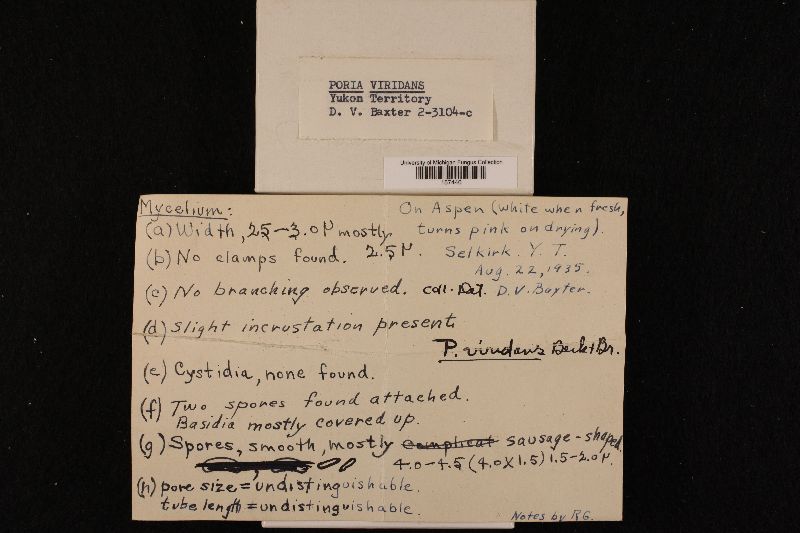 PORIA VIRIDANS
Yukon Territory
D. V. Baxter 2-3104-c
University of Michigan Fungus Collection
Mycelium:
On Aspen (white when fresh,
turns pink on drying).
(a) Width, 25-3.0µ mostly
2.5µ.
(b) No clamps found.
Selkirk. Y. T.
Aug. 22, 1935.
(c) No branching observed.
coll. Det. D.V. Baxter.
(d) Slight incrustation present.
P. viridans Berk + Br.
(e) Cystidia, none found.
(f) Two spores found attached.
Basidia mostly covered up.
(g) Spores, smooth, mostly sausage-shaped.
4.0-4.5 (4.0X1.5) 1.5-2.0µ.
(h) pore size = undistinguishable.
tube length = undistinguishable.
Notes by R.G.